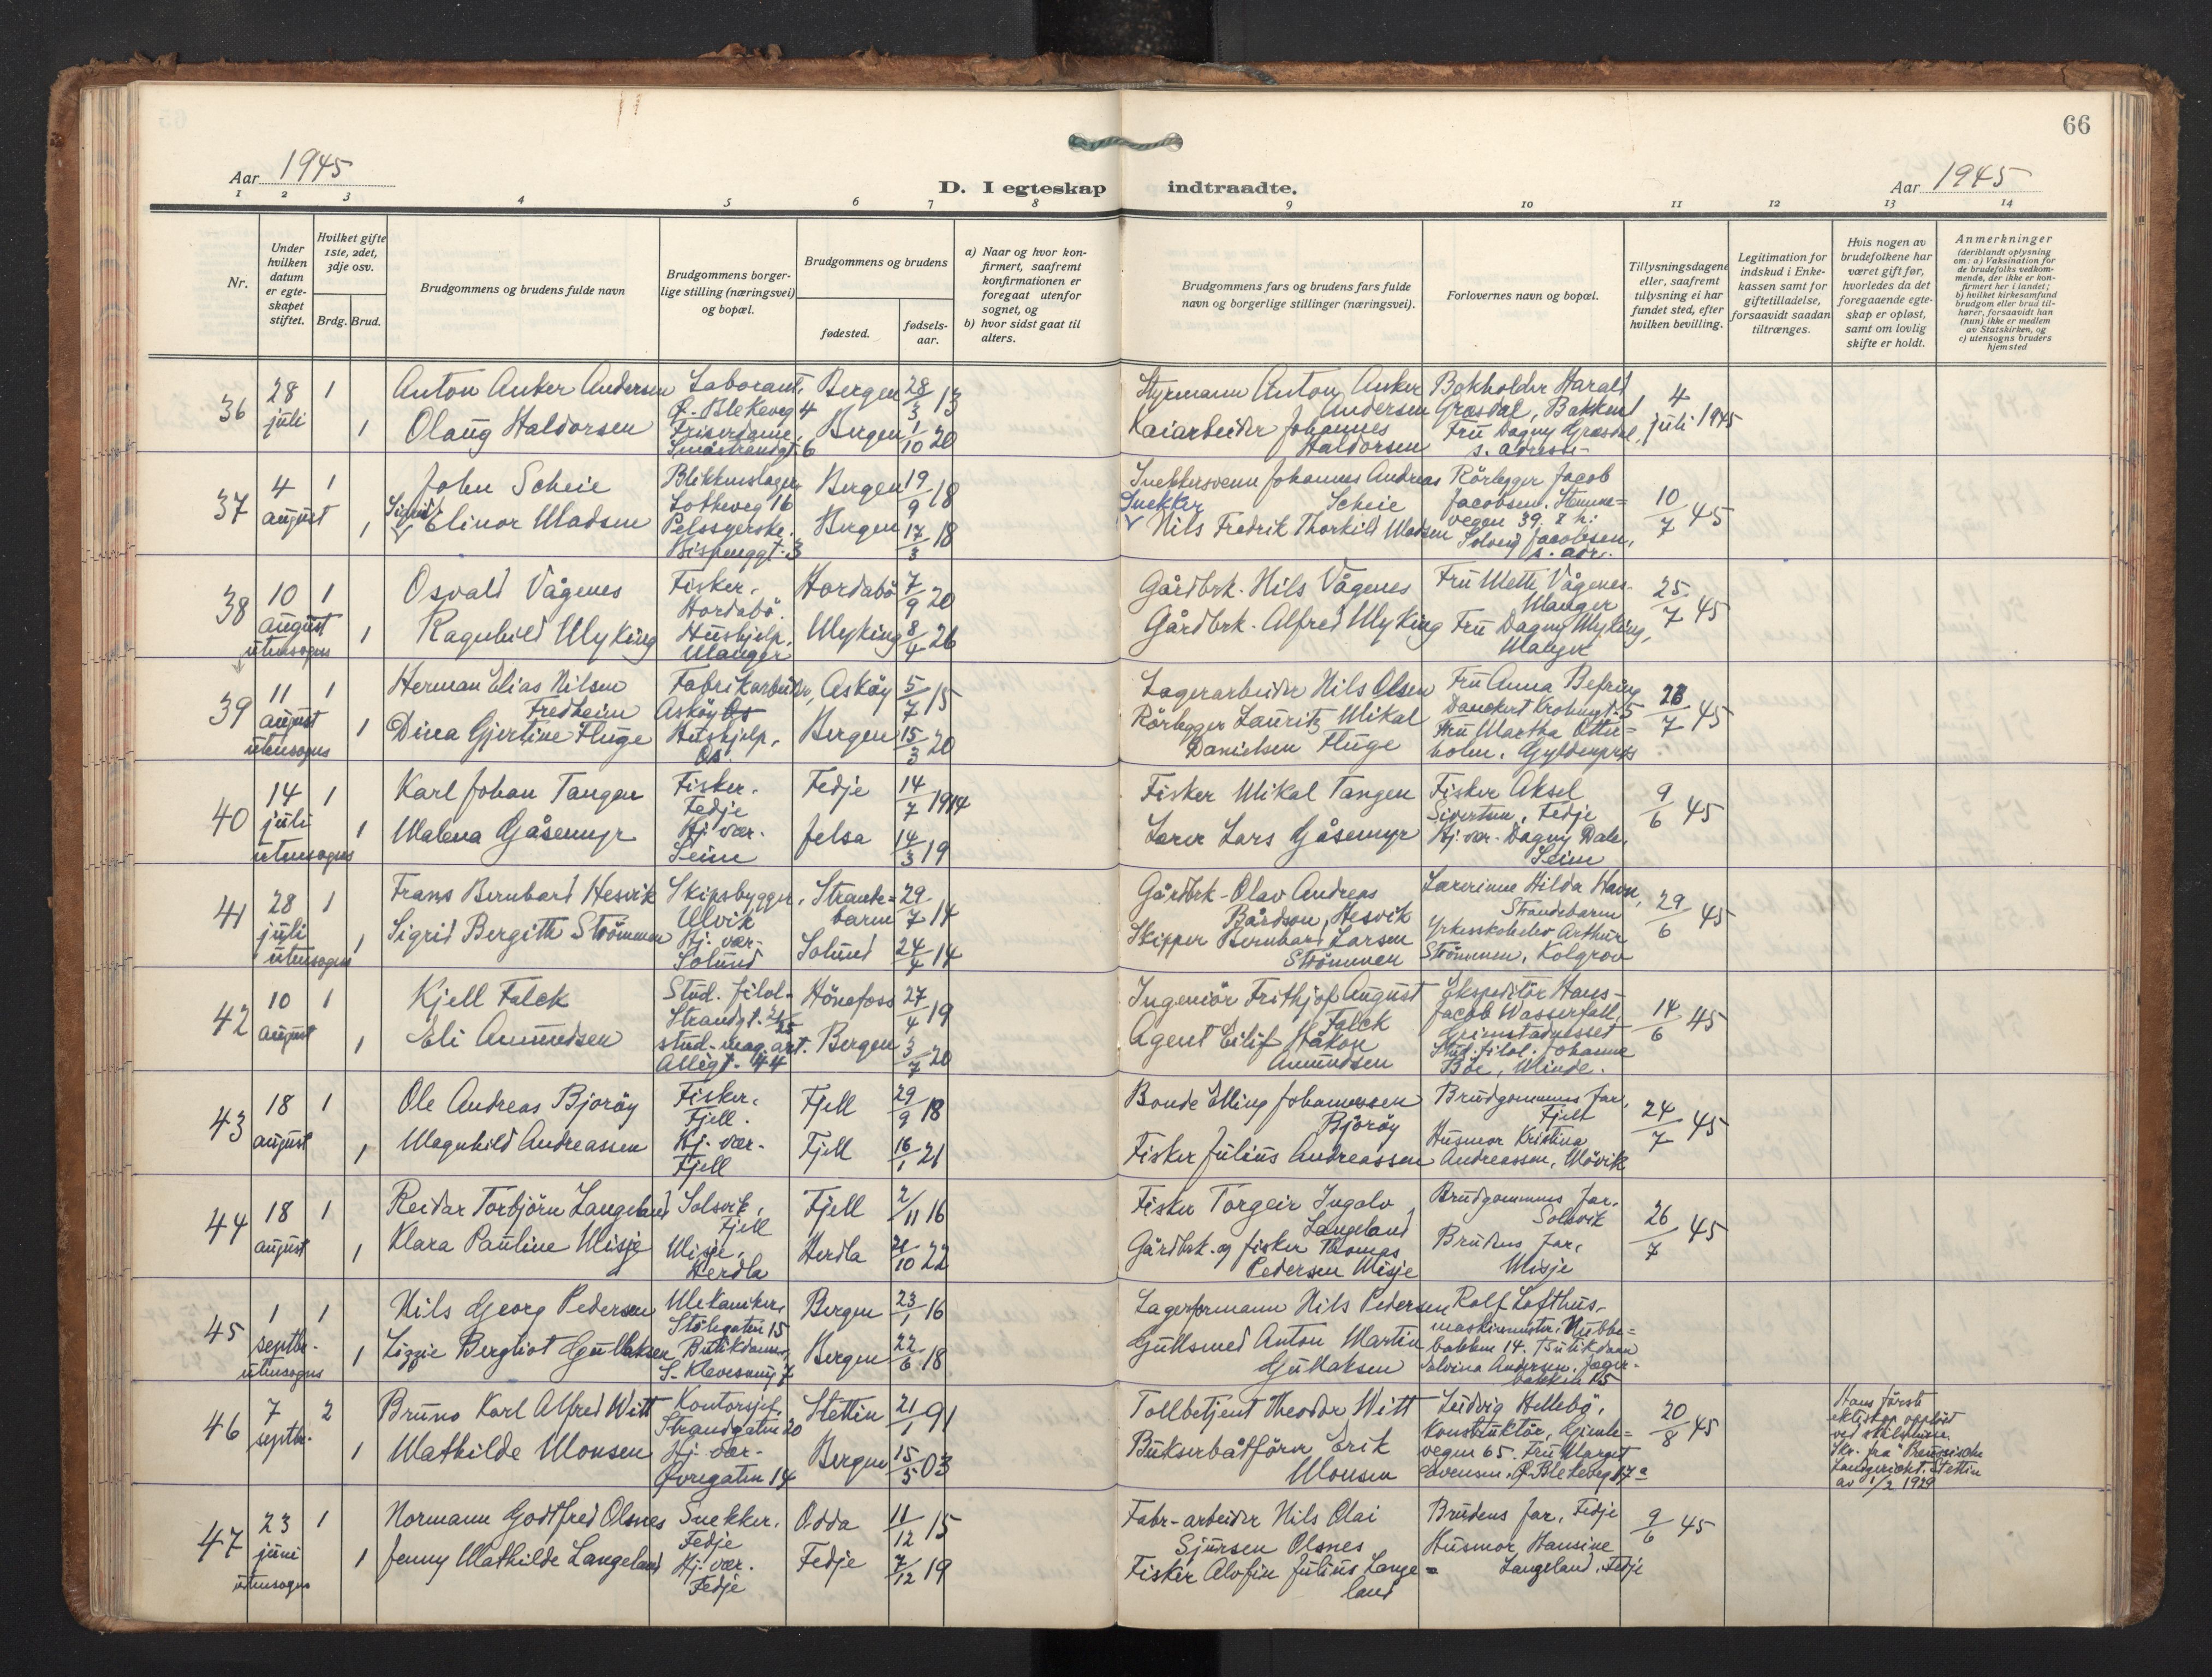 66
Aar 1945
D. I egteskap indtraadte.
Aar 1945
1 2 3 4 5 6 7 8 9 10 11 12 13 14
Nr.
Under hvilken datum er egteskapet stiftet.
Hvilket gifte 1ste, 2det, 3dje osv.
Brdg. Brud.
Brudgommens og brudens fulde navn
Brudgommens borgerlige stilling (næringsvei) og bopæl.
Brudgommens og brudens
fødested.
fødselsaar.
a) Naar og hvor konfirmert, saafremt konfirmationen er foregaat utenfor sognet, og
b) hvor sidst gaat til alters.
Brudgommens fars og brudens fars fulde navn og borgerlige stillinger (næringsvei).
Forlovernes navn og bopæl.
Tillysningsdagene eller, saafremt tillysning ei har fundet sted, efter hvilken bevilling.
Legitimation for indskud i Enkekassen samt for giftetilladelse, forsaavidt saadan tiltrænges.
Hvis nogen av brudefolkene har været gift før, hvorledes da det foregaaende egteskap er opløst, samt om lovlig skifte er holdt.
Anmerkninger
(deriblandt oplysning om: a) Vaksination for de brudefolks vedkommende, der ikke er konfirmert her i landet;
b) hvilket kirkesamfund brudgom eller brud tilhører, forsaavidt han (hun) ikke er medlem av Statskirken, og
c) utensogns bruders hjemsted
36 28 juli 1 Anton Anker Andersen Laborant, Ø. Blekeveg 4 Bergen 28/3 13 Styrmann Anton Anker Andersen Bokholder Harald Græsdal, Bakken 1 4 juli 1945
1 Olaug Haldorsen Friserdame, Småstrandgt. 6 Bergen 1/10 20 Kaiarbeider Johannes Haldorsen Fru Dagny Græsdal, s. adresse
37 4 august 1 John Scheie Blikkenslager, Lotheveg 16 Bergen 19/9 18 Snekkersvenn Johannes Andreas Scheie Rörlegger Jacob Jacobsen, Stemmevegen 39, 10/7 45
1 Sigrid Elinor Madsen Pelssyerske, Bispenggt. 3 Bergen 17/3 18 Snekker Nils Fredrik Thorkild Madsen Solveig Jacobsen, s. adr.
38 10 august utensogns 1 Osvald Vågenes Fisker, Hordabö Hordabö 7/9 20 Gårdbrk. Nils Vågenes Fru Mette Vågenes, Manger 25/7 45
1 Ragnhild Myking Hushjelp, Manger Myking 8/4 26 Gårdbrk. Alfred Myking Fru Dagny Myking, Manger
39 11 august utensogns 1 Herman Elias Nilsen Fredheim Fabrikarbeider, Asköy Os Asköy 5/7 15 Lagerarbeider Nils Olsen Fru Anna Befring Danckert Krohnsgt. 5 28/7 45
1 Dina Gjertine Fluge Hushjelp, Os. Bergen 15/3 20 Rörlegger Lauritz Mikal Danielsen Fluge Fru Martha Otterholm, Gyldenpris
40 14 juli utensogns 1 Karl Johan Tangen Fisker, Fedje Fedje 14/7 1914 Fisker Mikal Tangen Fisker Aksel Sivertsen, Fedje 9/6 45
1 Malena Gåsemyr Hj. vær. Seim Jelsa 14/3 19 Lærer Lars Gåsemyr Hj. vær. Dagny Dale, Seim
41 28 juli utensogns 1 Frans Bernhard Hesvik Skipsbygger, Ulvik Strandebarm 29/7 14 Gårdbrk. Olav Andreas Bårdson, Hesvik Lærerinne Hilda Havn, Strandebarm 29/6 45
1 Sigrid Bergith Strömmen Hj. vær. Solund Solund 24/4 14 Skipper Bernhard Larsen Strömmen Yrkesskoleelev Arthur Strömmen, Kolgrov
42 10 august 1 Kjell Falck Stud. filol. Strandgt. Hönefoss 27/4 19 Ingeniör Frithjof August Falck Ekspeditör Hans Jacob Wasserfall, Grimstadnesset 14/6 45
1 Eli Amundsen stud. mag. art. Allégt. 44 Bergen 3/7 20 Agent Eilif Håkon Amundsen Stud. filol. Johanne Böe, Minde.
43 18 august 1 Ole Andreas Bjoröy Fisker, Fjell. Fjell 29/9 18 Bonde Elling Johannessen Bjoröy Brudgommens far, Fjell 24/7 45
1 Magnhild Andreassen Hj. vær. Fjell Fjell 16/1 21 Fisker Julius Andreassen Husmor Kristina Andreassen, Mövik
44 18 august 1 Reidar Torbjörn Langeland Solsvik, Fjell Fjell 2/11 16 Fisker Torgeir Ingolv Langeland Brudgommens far, Solsvik 26/7 45
1 Klara Pauline Misje Misje, Herdla Herdla 21/10 22 Gårdbrk. og fisker Thomas Pedersen Misje Brudens far, Misje
45 1 septbr. utensogns 1 Nils Georg Pedersen Mekaniker, Stölegaten 15 Bergen 23/1 16 Lagerformann Nils Pedersen Rolf Lofthus, maskinmester, Nubbebakken 14.
1 Lizzie Bergliot Gullaksen Butikdame, Bergen 22/6 18 Gullsmed Anton Martin Gullaksen Butikdame Solvina Andersen,
46 7 septbr. 2 Bruno Karl Alfred Witt Kontorsjef, Strandgaten 20 Stettin 21/1 91 Tollbetjent Theodor Witt Ludvig Hellebö, Konstruktör, Gimlevegen 65. 20/8 45 Hans förste ekteskap opplöst ved skilsmisse. Skr. fra "Preussische Landgericht, Stettin av 1/2 1929
1 Mathilde Monsen Hj. vær. Øvregaten 14 Bergen 15/5 03 Buksurbåtförer Erik Monsen Fru Margit Evensen, Ø. Blekeveg 17a
47 23 juni utensogns 1 Normann Godtfred Olsnes Snekker, Fedje Odda 11/12 15 Fabr. arbeider Nils Olai Sjursen Olsnes Brudens far, Fedje 9/6 45
1 Jenny Mathilde Langeland Hj. vær. Fedje Fedje 7/12 19 Fisker Alofin Julius Langeland Husmor Hansine Langeland, Fedje